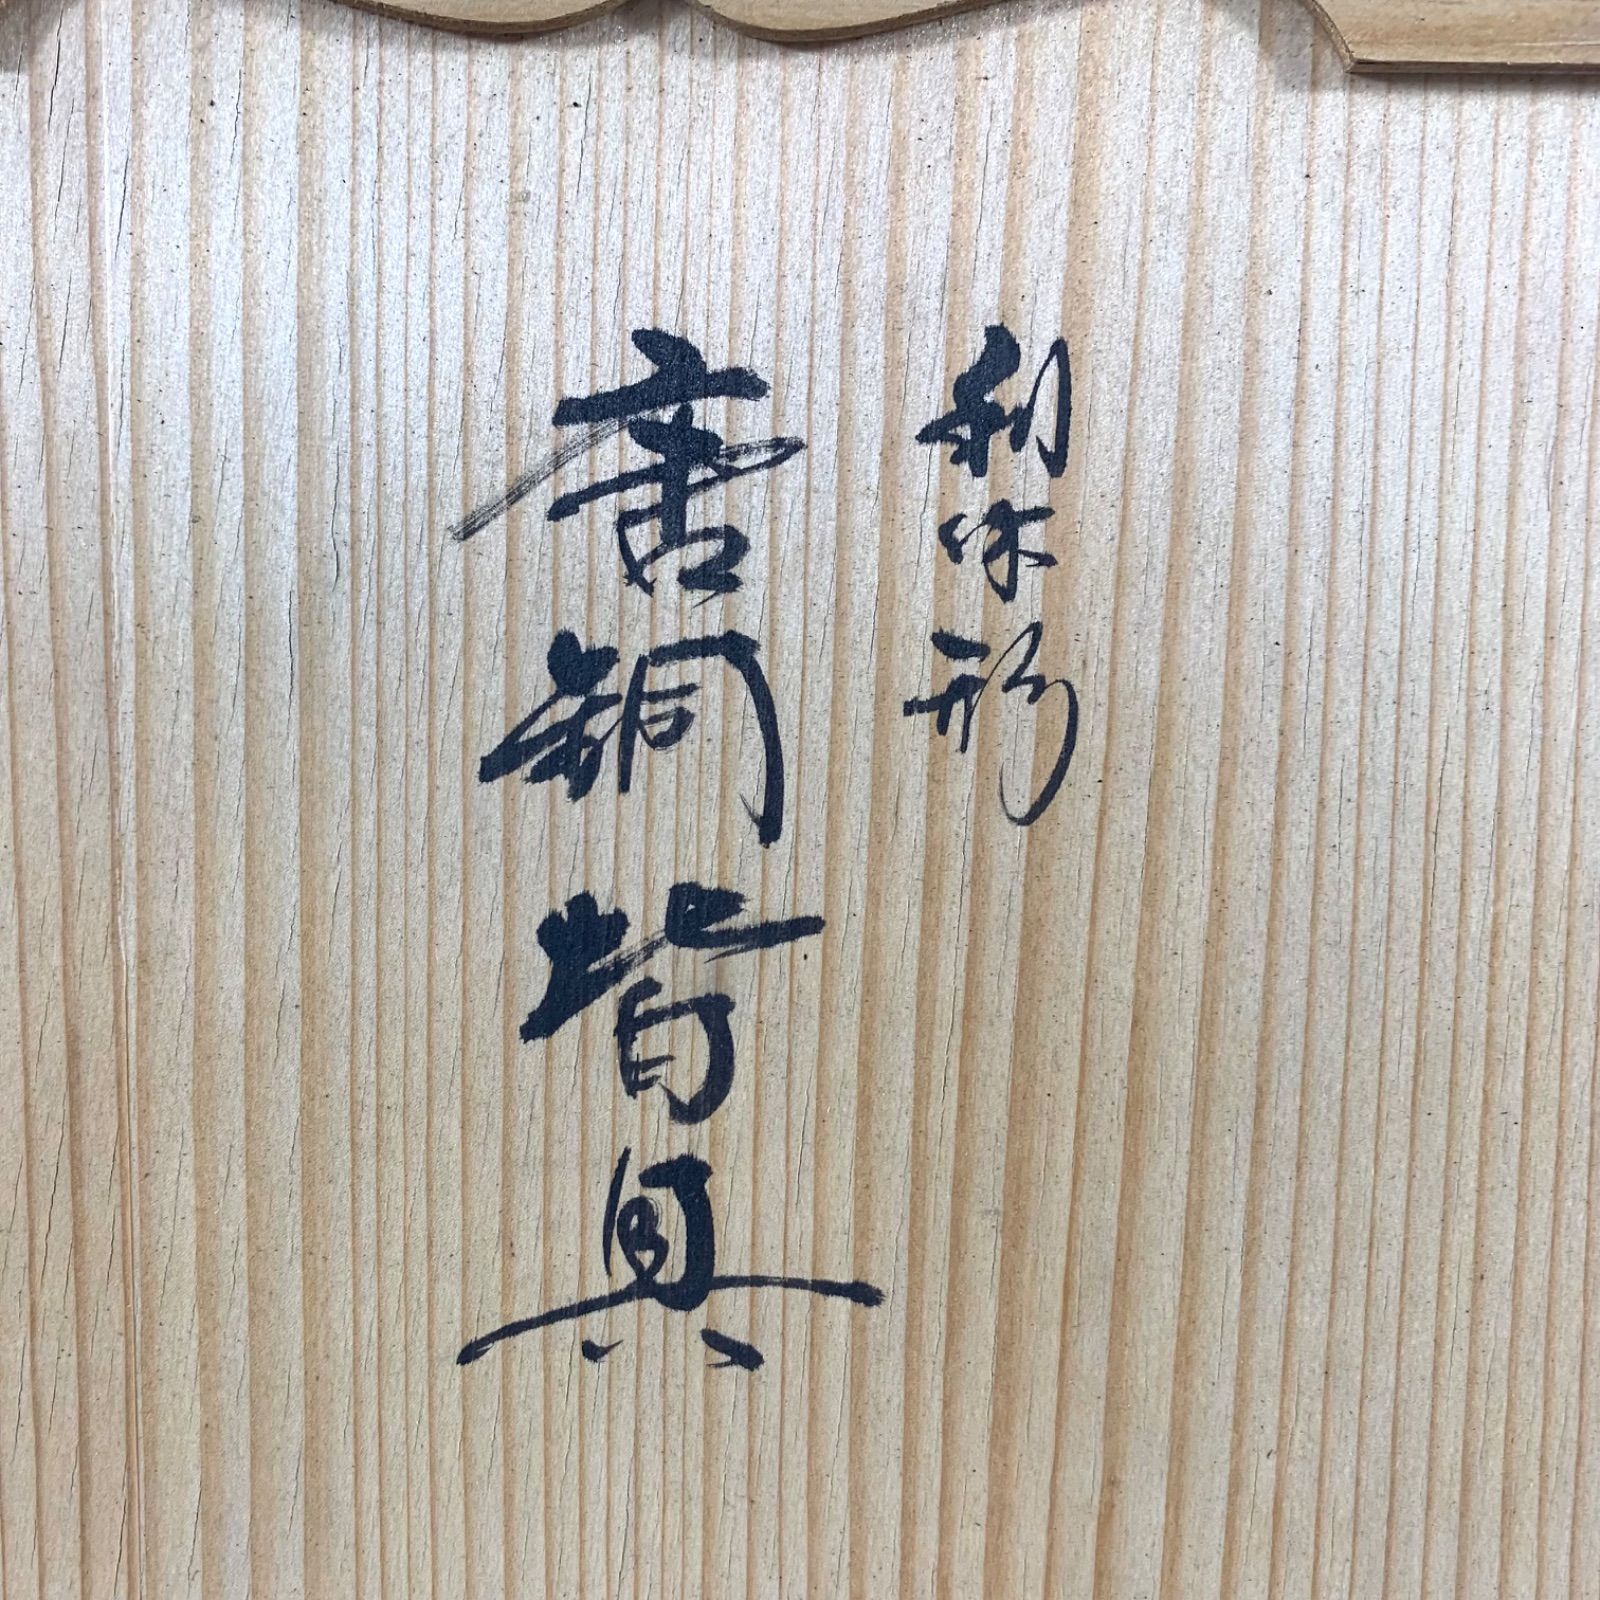 利休形
唐銅皆具